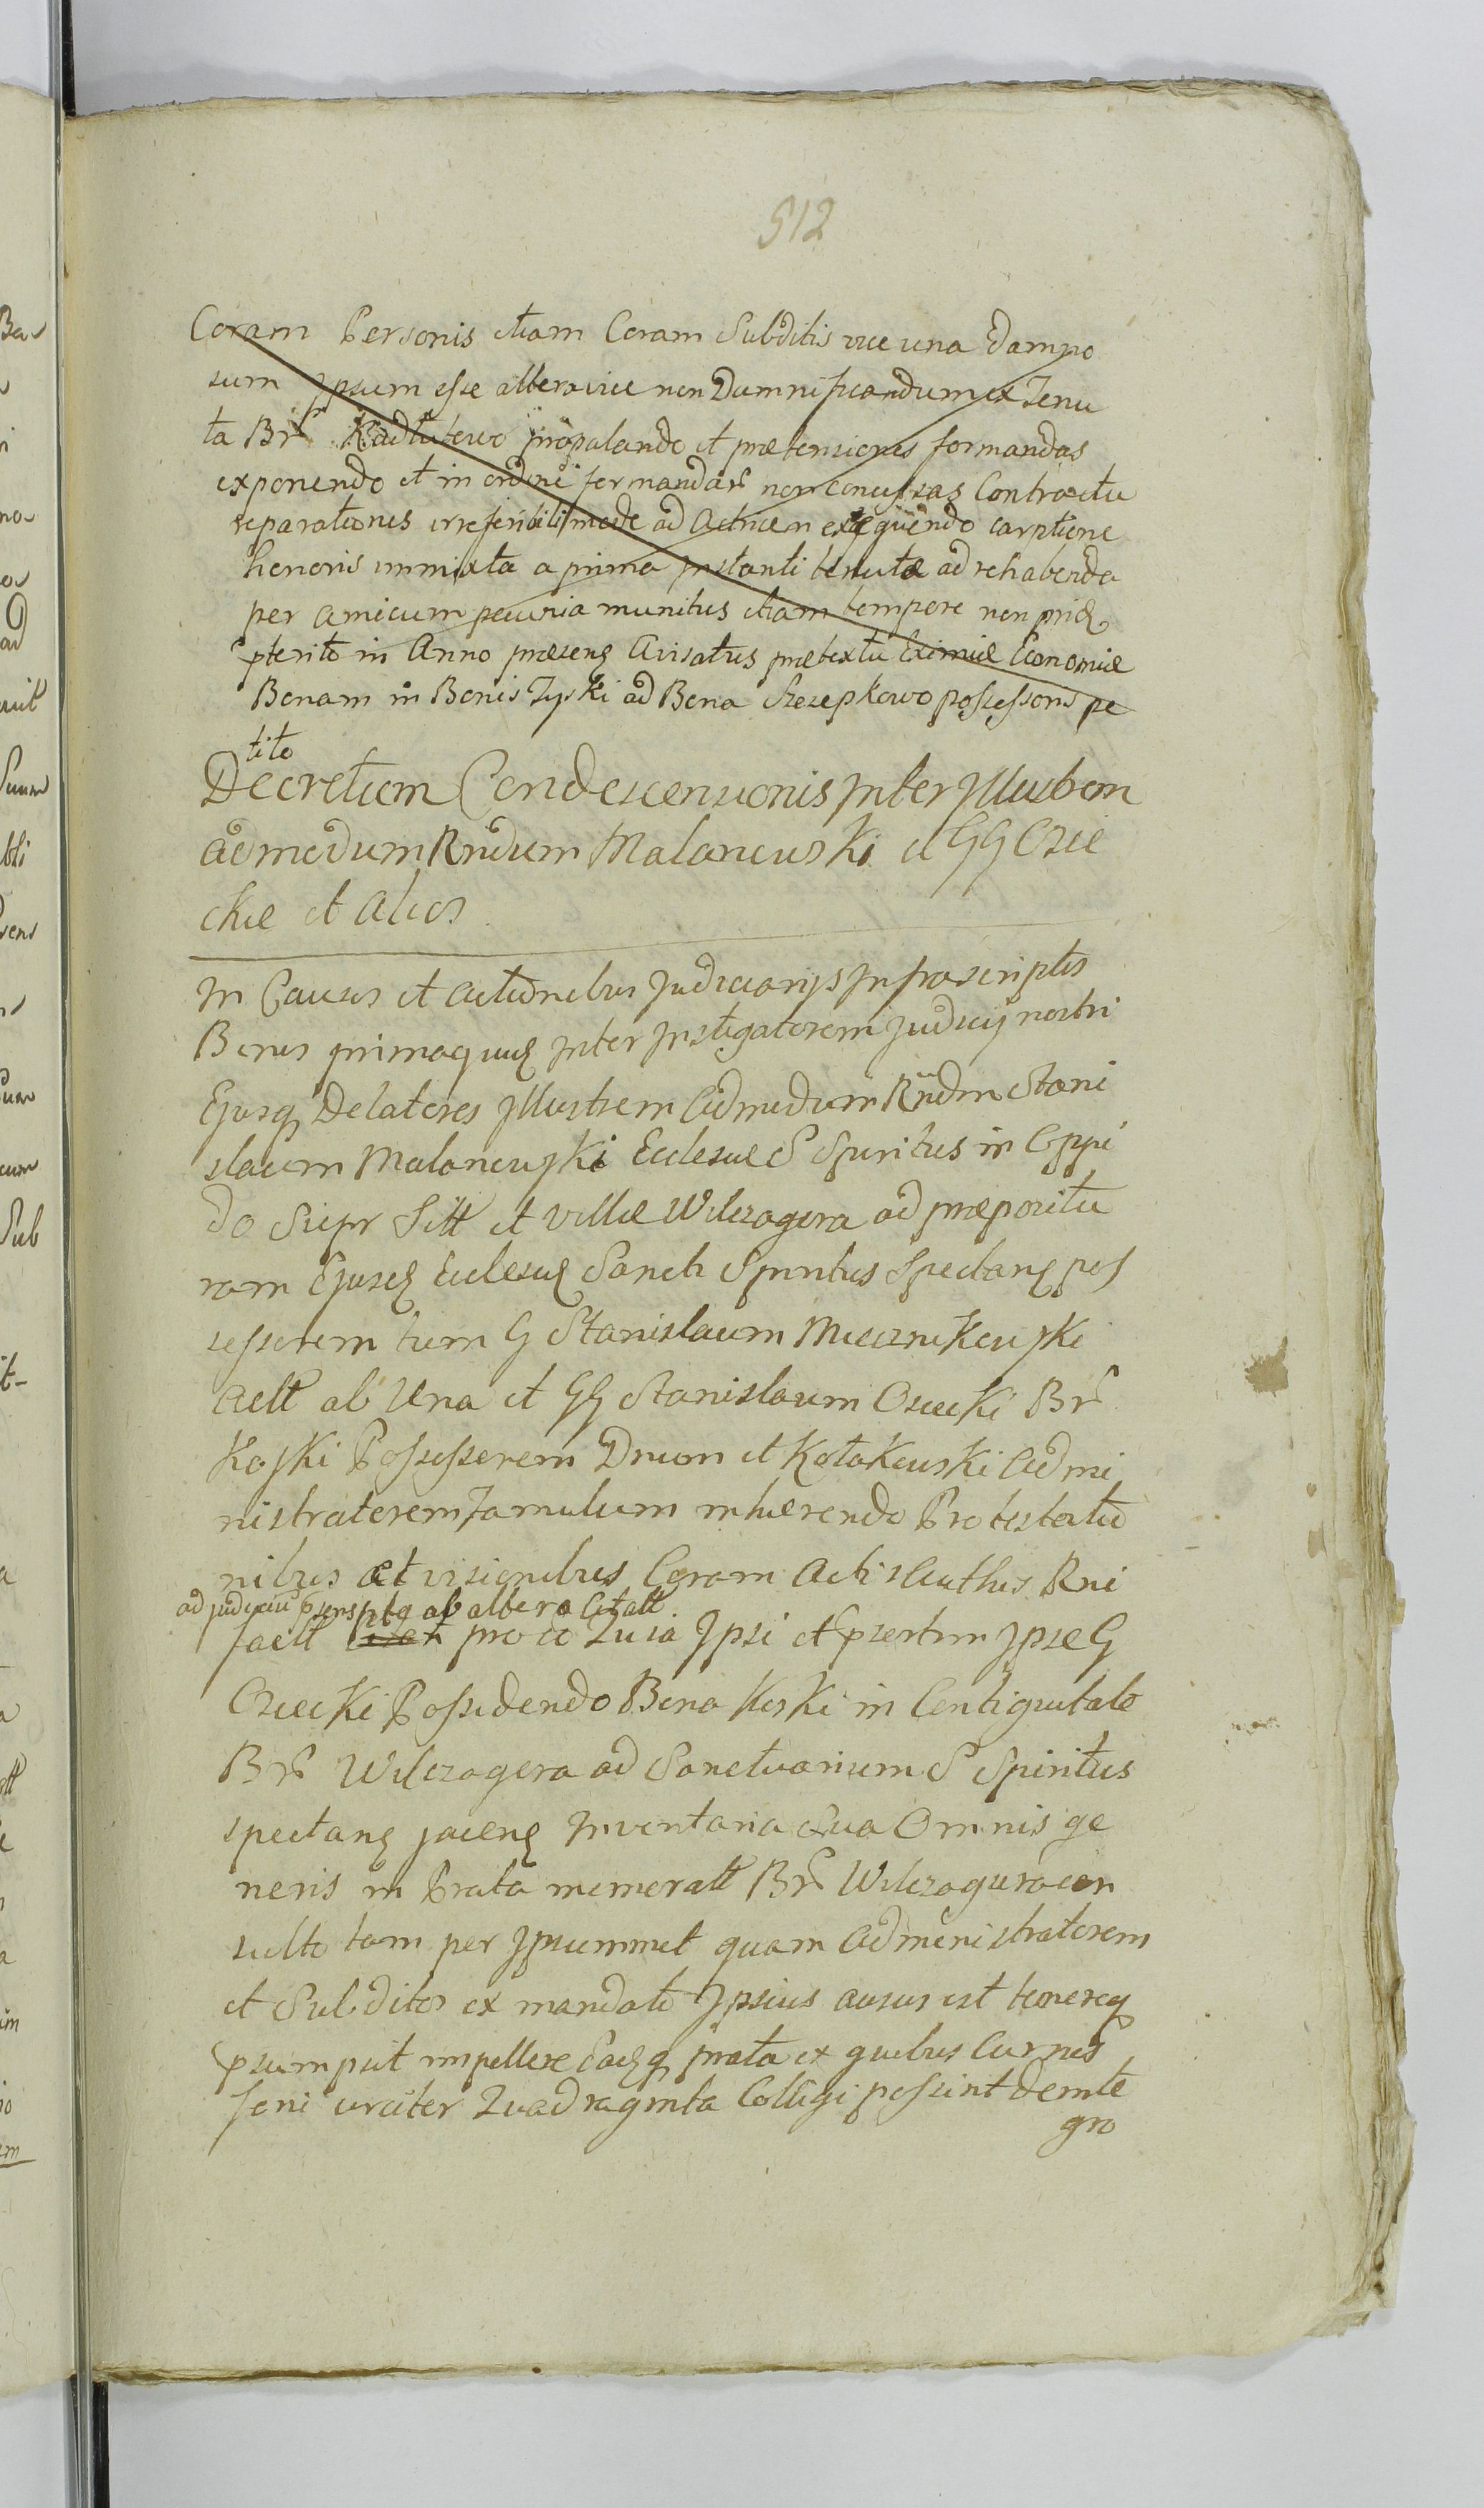 512
Coram Personis etiam Coram Subditis vice una Damno
sum Ipsum esse altera vice non Damnificandum ex Tenu
ta Brũ propalando et prætensiones formandas
exponendo et in ordine formandarũ non concussas Contractu
reparationes irreferibili mode ad Actricem exequendo carptione
honoris immixta a prima Instanti tenuta ad rehabenda
per amicum pecunia munitus etiam tempore non prid
pterito in Anno præsenꝫ Avisatus prætextu Eximiæ Economiæ
Bonam in Bonis Zyski ad Bona Szczepkowo possessoris pe
tito
Decretum Condescensionis Inter Illustrem
admodum Rndum Malonowski et GG Osie
ckie et Alios
In Causis et Actionibus Judiciarys Infrascriptis
Binis primaquidꝫ Inter Instigatorem Judicij nostri
Ejusq Delatores Illustrem Admodum Rndm Stani
slaum Malonowski Ecclesiæ S Spiritus in Oppi
do Siepr Sitt et Villæ Wilczagora ad præpositu
ram Ejusdꝫ Ecclesiæ Sancti Spiritus Spectanꝫ pos
sessorem tum G Stanislaum Miecznikowski
Actt ab Una et GG Stanislaum Osiecki Brũ
Koski Possessorem Dnum et Kotakowski Admi
nistratorem Famulum inhærendo Protestatio
nibus et visionibus Coram Actis Authis Rni
ad Judiciũ psens pta ab altera Citatt
factt pro eo Quia Ipsi et psertim Ipse G
Osiecki Possidendo Bona Koski in Contiguitate
Brũ Wilczagora ad Sanctuarium S Spiritus
spectanꝫ jacenꝫ Inventaria Sua Omnis ge
neris in Prata memoratt Brũ Wilczagura con
sulto tam per Ipsummet quam Administratorem
et Subditos ex mandato Ipsius ausus est temereq
psumpsit impellere Eadꝫq prata ex quibus Currus
foeni Quadraginta Colligi possint demte
gro